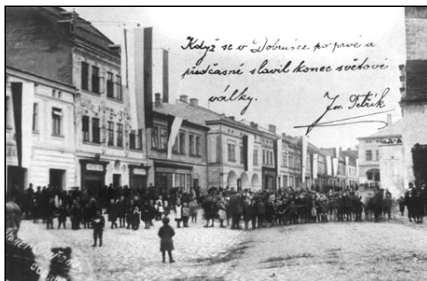 Když se v Dobrušce po prvé a
předčasně slavil konec světové
války.
Jn. Petřík